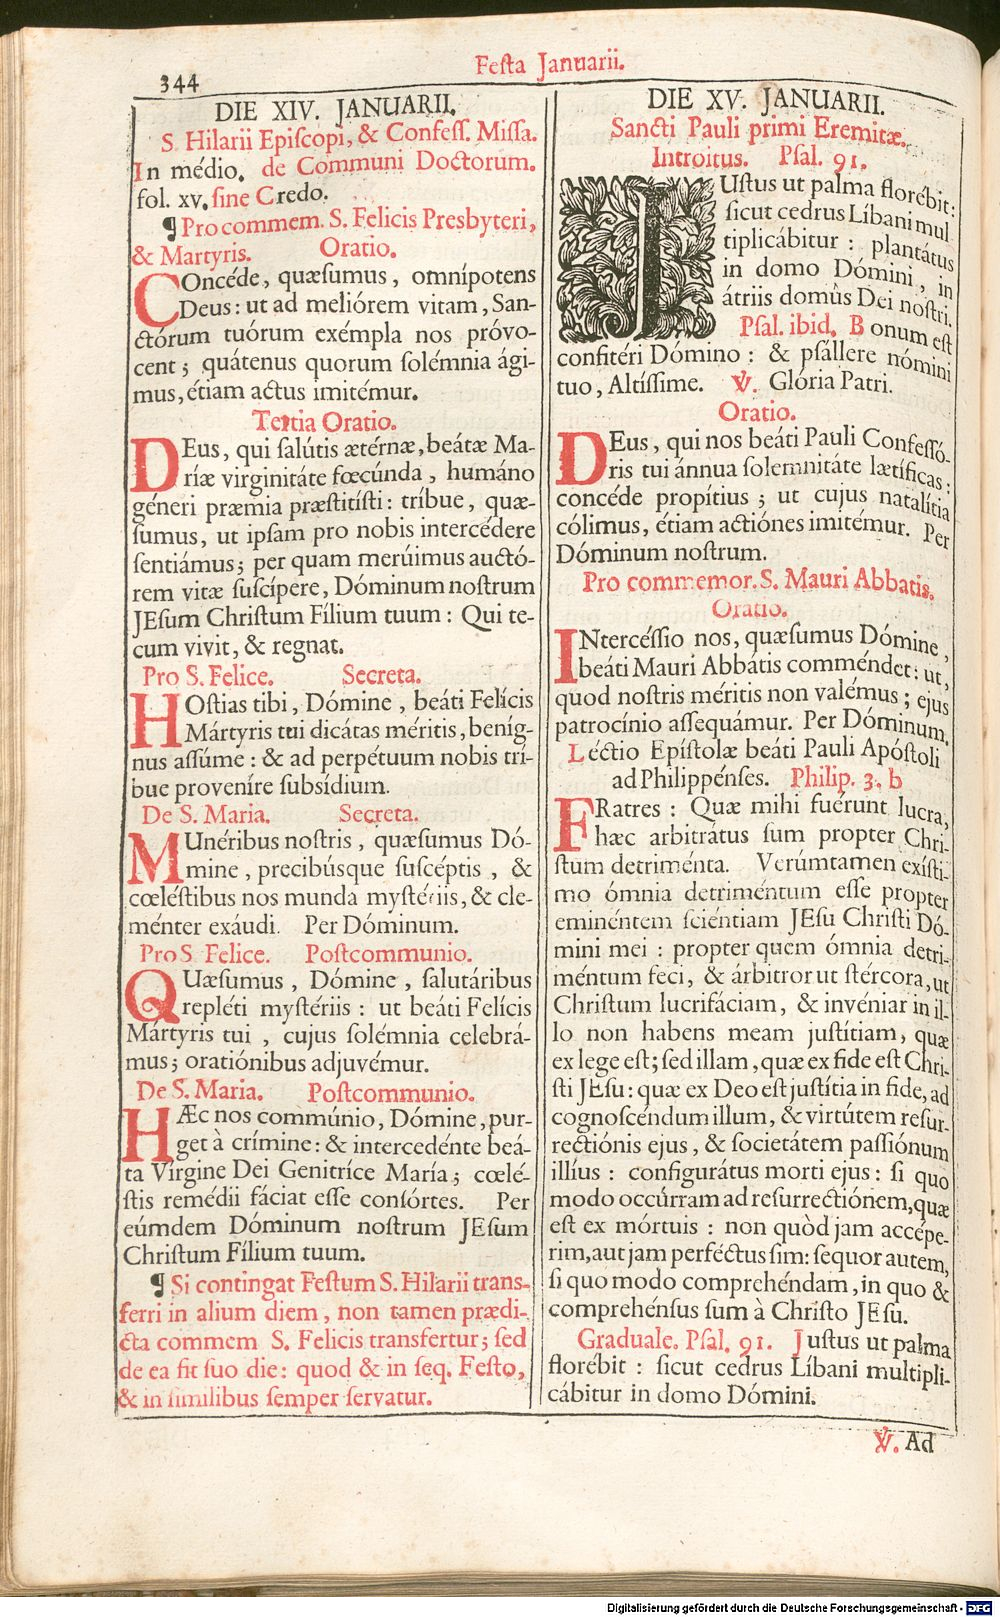 344
Festa Januarii.
DIE XIV. JANUARII.
S. Hilarii Episcopi, & Confess. Missa.
In médio. de Communi Doctorum.
fol. xv. sine Credo.
¶ Pro commem. S. Felicis Presbyteri,
& Martyris. Oratio.
COncéde, quæsumus, omnípotens
Deus: ut ad meliórem vitam, San-
ctórum tuórum exémpla nos próvo-
cent; quátenus quorum solémnia ági-
mus, étiam actus imitémur.
Tertia Oratio.
DEus, qui salútis ætérnæ, beátæ Ma-
ríæ virginitáte fœcúnda, humáno
géneri præmia præstitísti: tríbue, quæ-
sumus, ut ipsam pro nobis intercédere
sentiámus; per quam merúimus auctó-
rem vitæ suscípere, Dóminum nostrum
JEsum Christum Fílium tuum: Qui te-
cum vivit, & regnat.
Pro S. Felice. Secreta.
HOstias tibi, Dómine, beáti Felícis
Mártyris tui dicátas méritis, beníg-
nus assúme: & ad perpétuum nobis trí-
bue proveníre subsídium.
De S. Maria. Secreta.
MUnéribus nostris, quæsumus Dó-
mine, precibúsque suscéptis, &
cœléstibus nos munda mystériis, & cle-
ménter exáudi. Per Dóminum.
Pro S. Felice. Postcommunio.
QUæsumus, Dómine, salutáribus
repléti mystériis: ut beáti Felícis
Mártyris tui, cujus solémnia celebrá-
mus; oratiónibus adjuvémur.
De S. Maria. Postcommunio.
HÆc nos commúnio, Dómine, pur-
get à crímine: & intercedénte beá-
ta Vírgine Dei Genitríce María; cœlé-
stis remédii fáciat esse consórtes. Per
eúmdem Dóminum nostrum JEsum
Christum Fílium tuum.
¶ Si contingat Festum S. Hilarii trans-
ferri in alium diem, non tamen prædi-
cta commem S. Felicis transfertur; sed
de ea fit suo die: quod & in seq. Festo,
& in similibus semper servatur.
DIE XV. JANUARII.
Sancti Pauli primi Eremitæ.
Introitus. Psal. 91.
JUstus ut palma florébit:
sicut cedrus Líbani mul
tiplicábitur: plantátus
in domo Dómini, in
átriis domùs Dei nostri.
Psal. ibid. Bonum est
confitéri Dómino: & psállere nómini
tuo, Altíssime. ℣. Glória Patri.
Oratio.
DEus, qui nos beáti Pauli Confessó-
ris tui ánnua solemnitáte lætíficas:
concéde propítius; ut cujus natalítia
cólimus, étiam actiónes imitémur. Per
Dóminum nostrum.
Pro commemor. S. Mauri Abbatis.
Oratio.
INtercéssio nos, quæsumus Dómine,
beáti Mauri Abbátis comméndet: ut,
quod nostris méritis non valémus; ejus
patrocínio assequámur. Per Dóminum.
Léctio Epístolæ beáti Pauli Apóstoli
ad Philippénses. Philip. 3. b
FRatres: Quæ mihi fuérunt lucra,
hæc arbitrátus sum propter Chri-
stum detriménta. Verúmtamen exísti-
mo ómnia detriméntum esse propter
eminéntem sciéntiam JEsu Christi Dó-
mini mei: propter quem ómnia detri-
méntum feci, & árbitror ut stércora, ut
Christum lucrifáciam, & invéniar in il-
lo non habens meam justítiam, quæ
ex lege est; sed illam, quæ ex fide est Chri-
sti JEsu: quæ ex Deo est justítia in fide, ad
cognoscéndum illum, & virtútem resur-
rectiónis ejus, & societátem passiónum
illíus: configurátus morti ejus: si quo
modo occúrram ad resurrectiónem, quæ
est ex mórtuis: non quòd jam accépe-
rim, aut jam perféctus sim: sequor autem,
si quo modo comprehéndam, in quo &
comprehénsus sum à Christo JEsu.
Graduale. Psal. 91. Justus ut palma
florébit: sicut cedrus Líbani multipli-
cábitur in domo Dómini.
℣. Ad
Digitalisierung gefördert durch die Deutsche Forschungsgemeinschaft - DFG